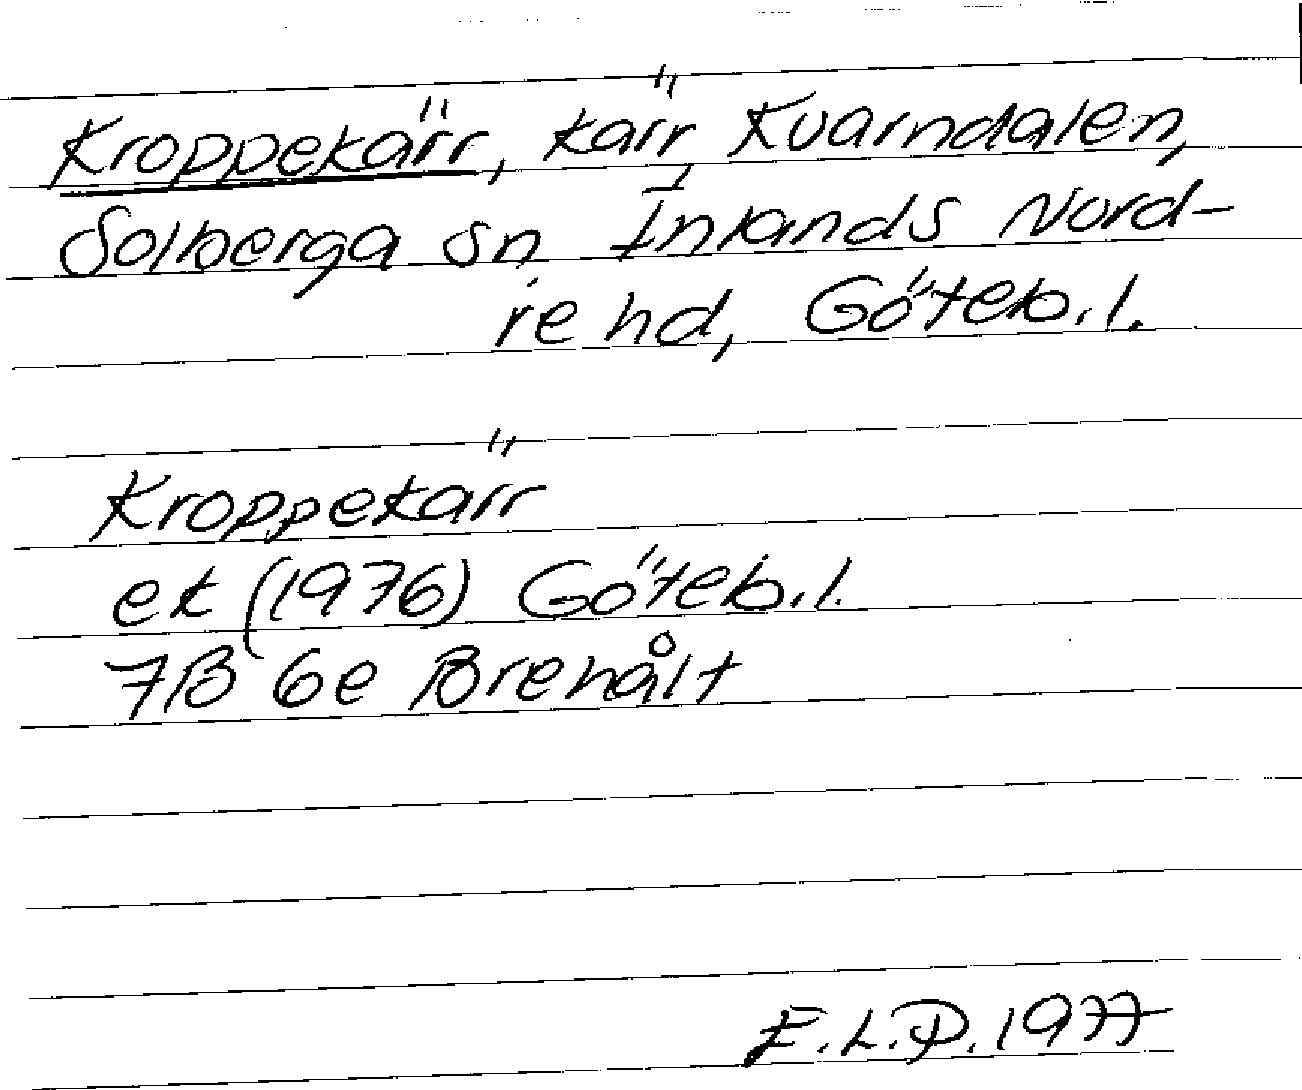 Kroppekärr, kärr Kvarndalen,
Solberga sn Inlands Nord-
re hd, Göteb. l.
Kroppekärr
ek (1976) Göteb. l.
7B 6e Brehålt
E.L.P. 1977